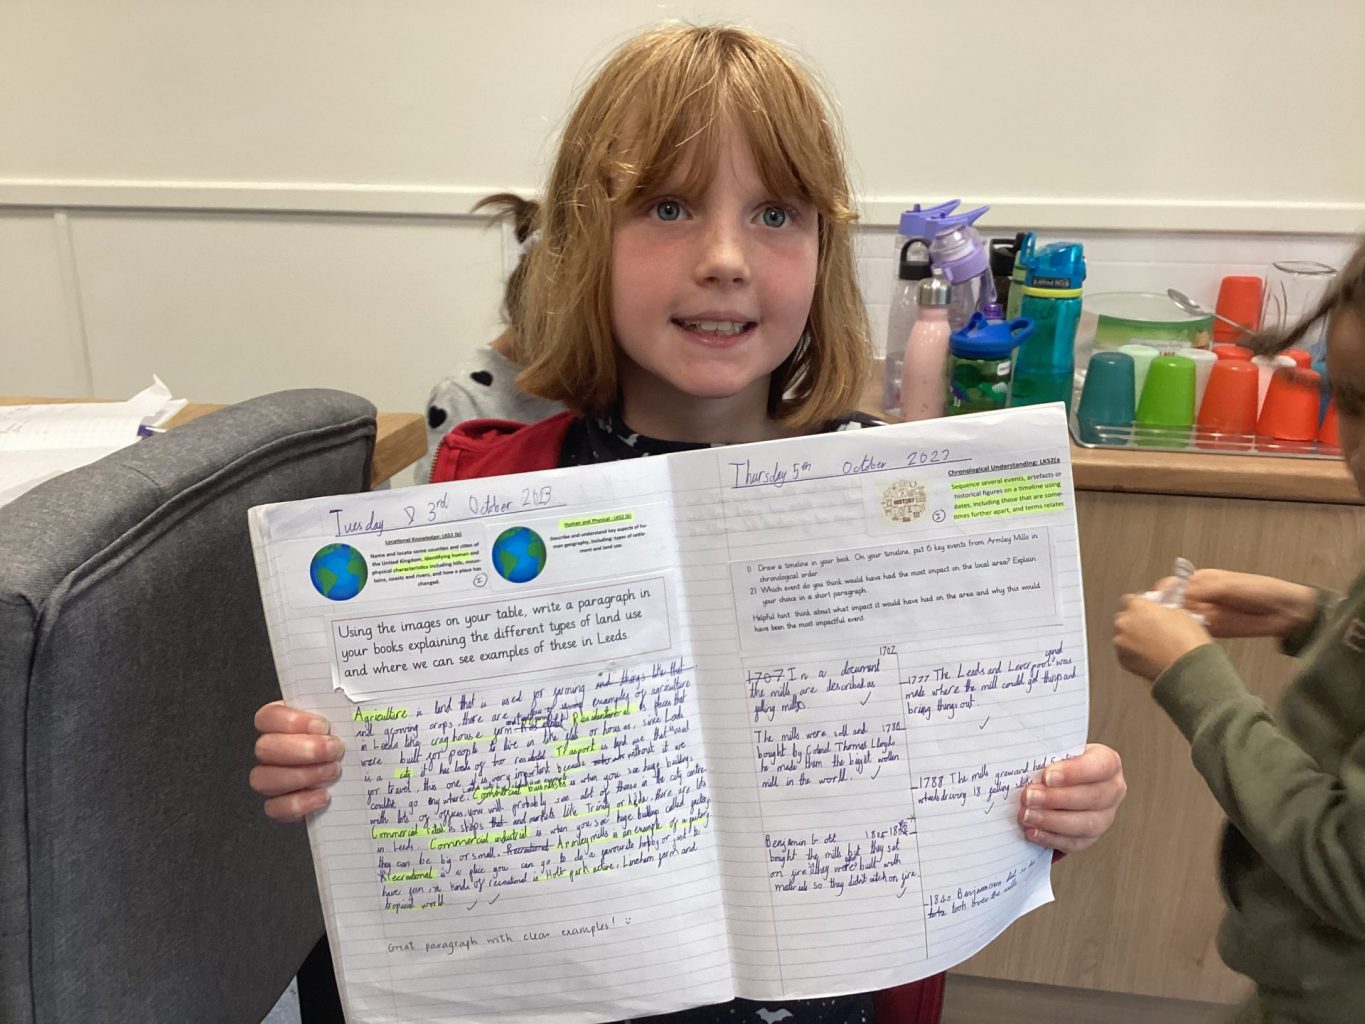 Tuesday 3rd October 2023
Locational Knowledge: LKS2 (b)
Name and locate some counties and cities of
the United Kingdom, identifying human and
physical characteristics including hills, moun-
tains, coasts and rivers, and how a place has
changed.
I
Human and Physical : LKS2 (b)
Describe and understand key aspects of hu-
man geography, including: types of settle-
ment and land use.
Using the images on your table, write a paragraph in
your books explaining the different types of land use
and where we can see examples of these in Leeds.
Agriculture is land that is used for farming and things like that
and growing crops, there are examples of agriculture
in Leeds like farm. is places that
were built for people to live in like flats or houses, since Leeds
is a city it has loads of Trasport is land use that is used
for travel, this one is very important because without it we
couldn't go anywhere. Commercial is when you see huge buildings
with lots of offices, you will probably see alot of these in the city centre.
Commercial is shops that and markets like Trinity there are lots
in Leeds. Commercial industrial is when you see huge building called factorys
they can be big or small. Recreational Armley mills is an example of a factory
Recreational is a place you can go to do a favourite hobby or just to
have fun, kinds of recreational is Holt park active, farm and
tropical world.
Great paragraph with clear examples! :)
Thursday 5th October 2023
Chronological Understanding: LKS2(a
HISTORY
I
Sequence several events, artefacts or
historical figures on a timeline using
dates, including those that are some-
times further apart, and terms related
1) Draw a timeline in your book. On your timeline, put 6 key events from Armley Mills in
chronological order
2) Which event do you think would have had the most impact on the local area? Explain
your choice in a short paragraph.
Helpful hint: think about what impact it would have had on the area and why this would
have been the most impactful event
1707 In a document 1707
the mills are described as
fulling mills.
1777 The Leeds and Liverpool canal was
made where the mill could get things and
bring things out
The mills were sold and 1788
bought by Colonel Thomas Lloyd,
he made them the bigest wollen
mill in the world.
1788 The mills grew and had 5
wheels driving 18 fulling
Benjamin Gott 1805
bought the mills but they set
on fire they were built with
materials so they didn't catch on fire.
1840 Benjamin
took over the mills